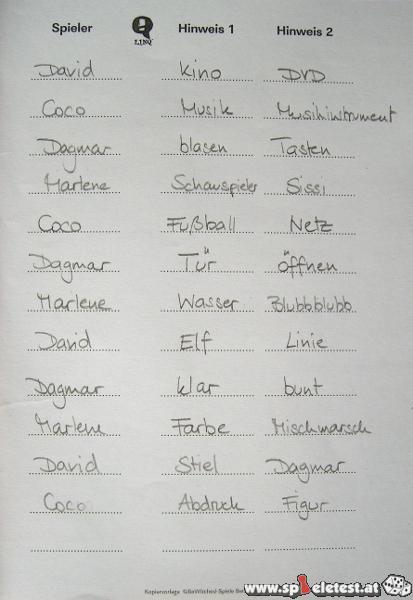 Spieler LINQ Hinweis 1 Hinweis 2
David Kino DVD
Coco Musik Musikinstrument
Dagmar blasen Tasten
Marlene Schauspieler Sissi
Coco Fußball Netz
Dagmar Tür öffnen
Marlene Wasser Blubbblubb
David Elf Linie
Dagmar klar bunt
Marlene Farbe Mischmarsch
David Stiel Dagmar
Coco Abdruck Figur
Kopiervorlage ©BeWitched-Spiele
www.spieletest.at